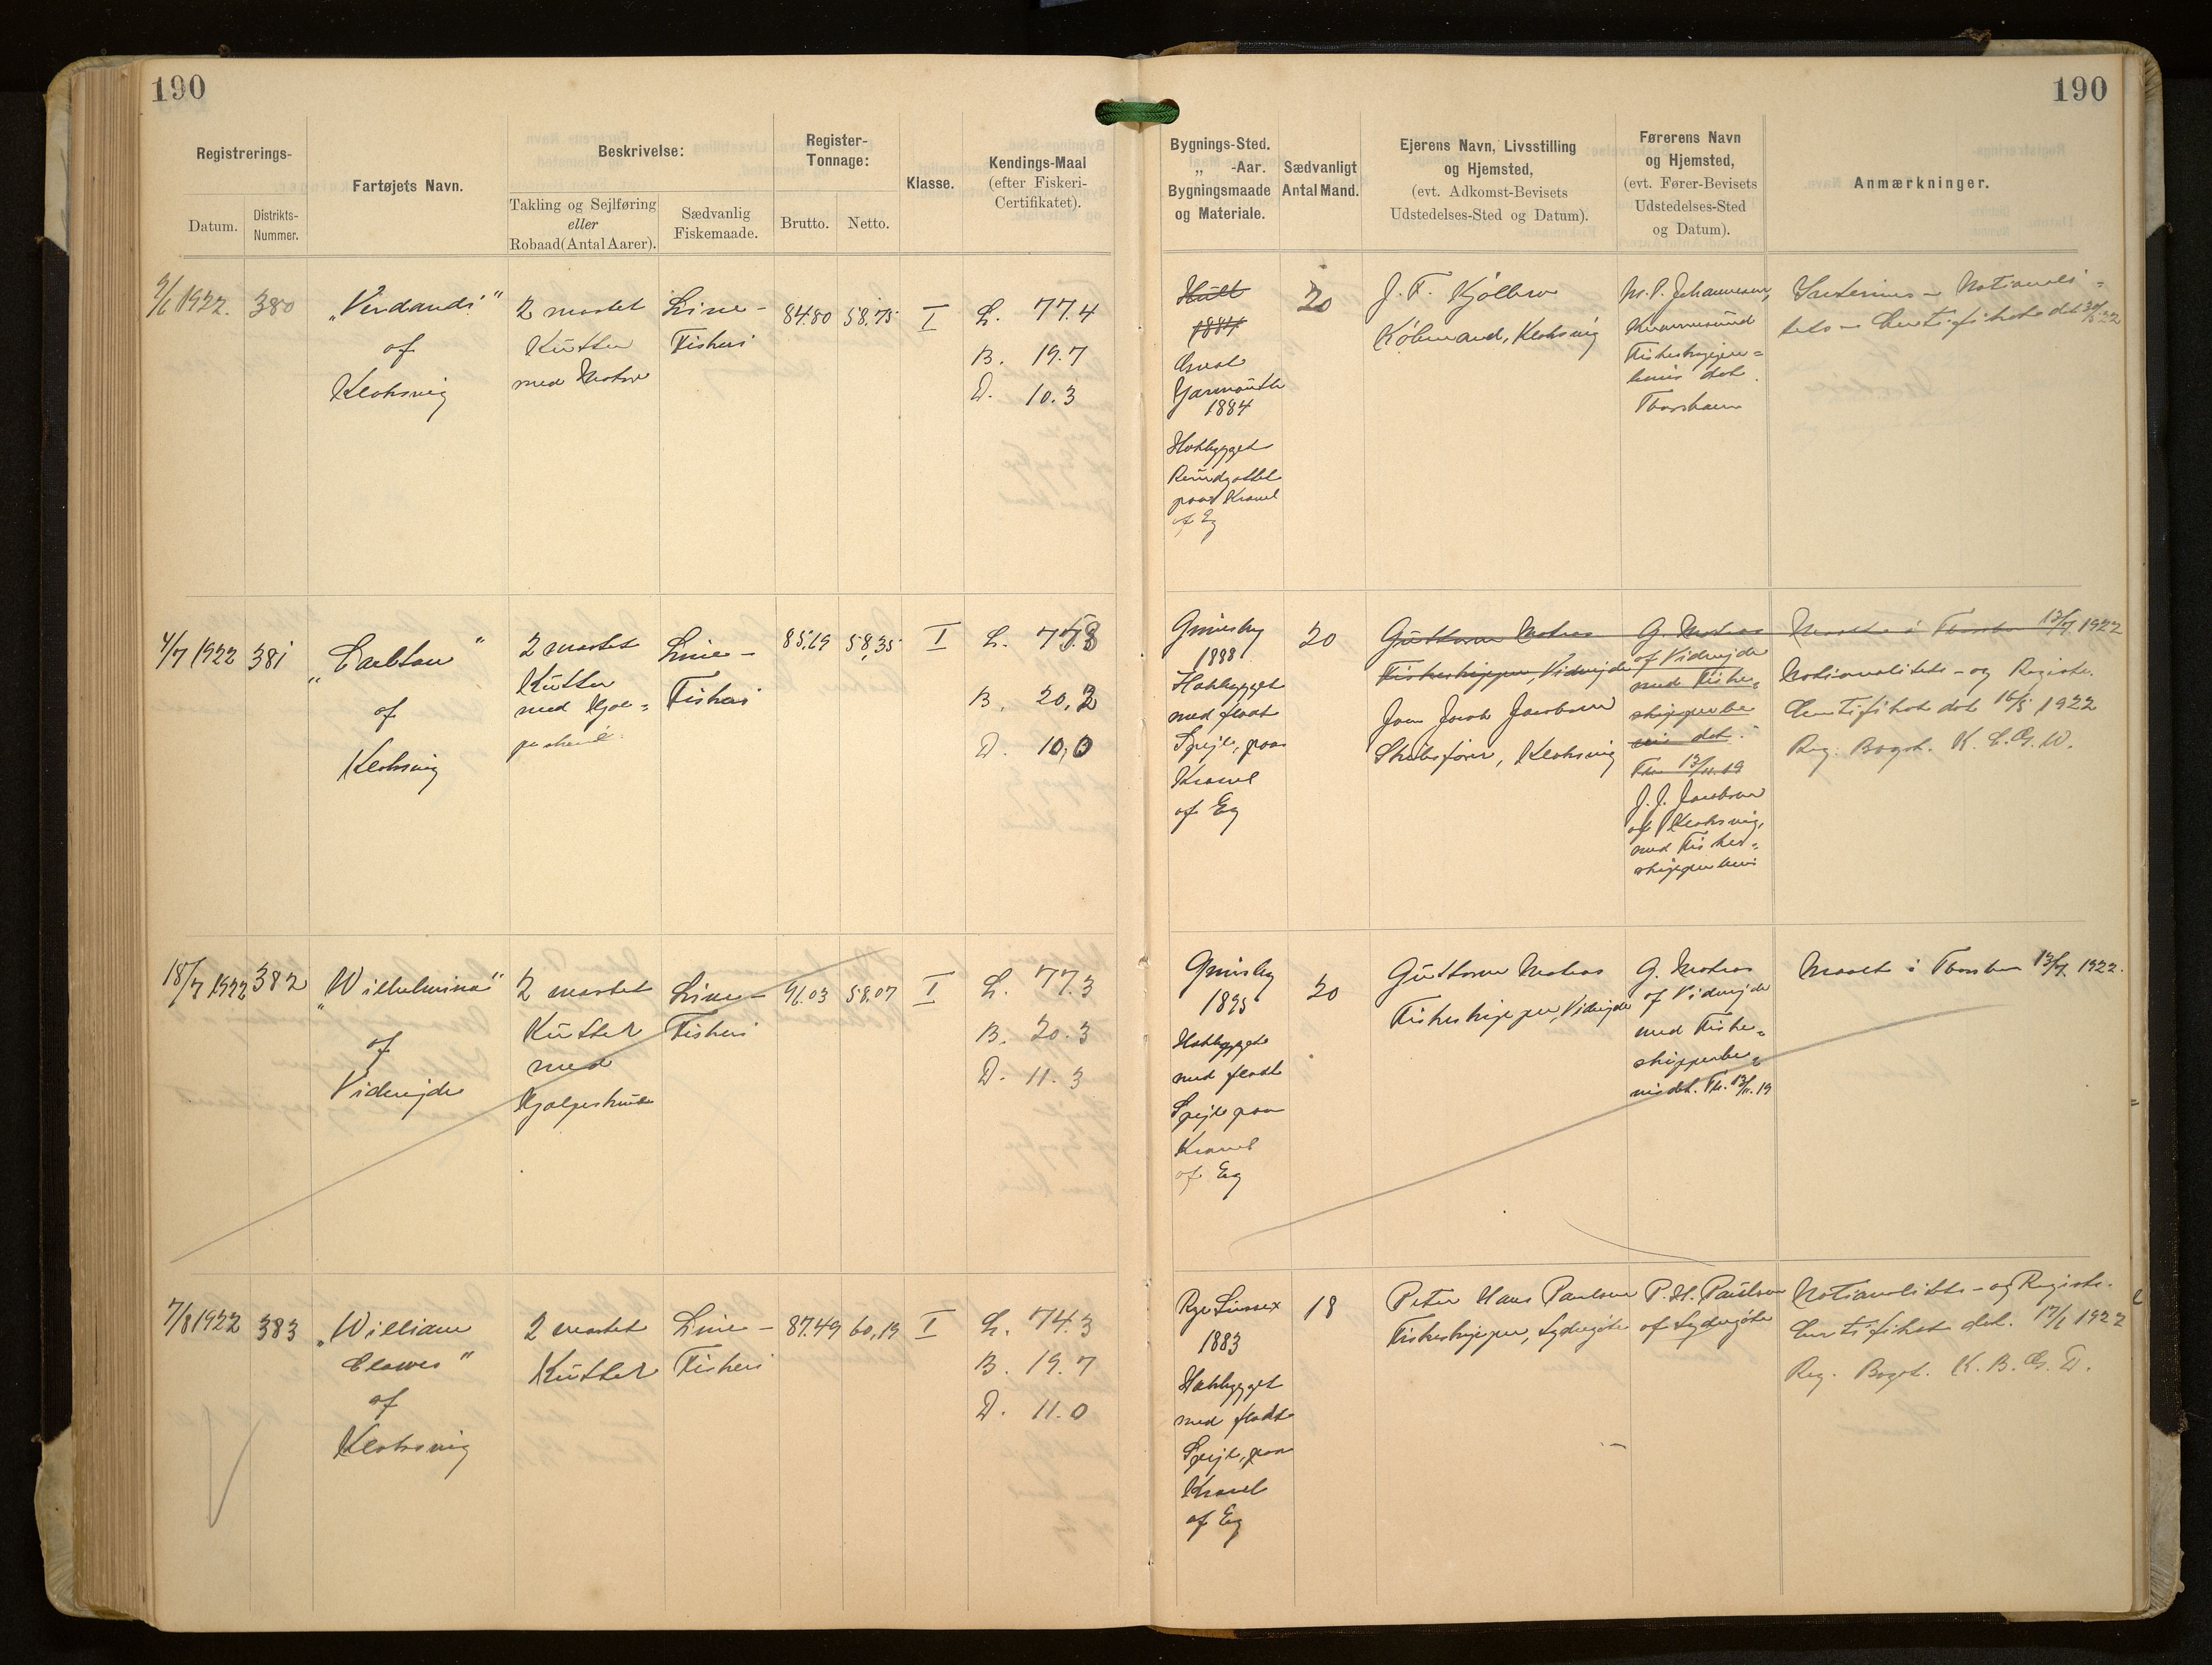 190
190
Registrerings-
Datum.
Distrikts-
Nummer.
Fartøjets Navn.
Beskrivelse:
Takling og Sejlføring
eller
Robaad (Antal Aarer).
Sædvanlig
Fiskemaade.
Register-
Tonnage:
Brutto.
Netto.
Klasse.
Kendings-Maal
(efter Fiskeri-
Certifikatet).
Bygnings-Sted.
„ -Aar.
Bygningsmaade
og Materiale.
Sædvanligt
Antal Mand.
Ejerens Navn, Livsstilling
og Hjemsted,
(evt. Adkomst-Bevisets
Udstedelses-Sted og Datum).
Førerens Navn
og Hjemsted,
(evt. Fører-Bevisets
Udstedelses-Sted
og Datum).
Anmærkninger.
9/6 1922.
380
„Verdandi“
af
Klaksvig
2 mastet
Kutter
med Motor
Line-
Fiskeri
84.80
58,75
I
L. 77.4
B. 19.7
D. 10.3
Hull
Great
Yarmouth
1884
Hækbygget
Rundgattet
paa Kravel
af Eg
20
J. F. Kjølbro
Købmand, Klaksvig
M. P. Johannesen,
Kvannesund
Fiskeskipper=
bevis dat.
Thorshavn
Nationali=
tets- Certifikat dat
4/7 1922
381
„Carlton“
af
Klaksvig
2 mastet
Kutter
med Hjæl=
peskrue.
Line-
Fiskeri
85,19
58,35
I
L. 77.8
B. 20,2
D. 10,0
Grimsby
1888
Hækbygget
med fladt
Spejl, paa
Kravel
af Eg
20
Guttorm Matras
Fiskeskipper, Viderejde
Joen Jacob Jacobsen
Skibsfører, Klaksvig
G. Matras
af Viderejde
med Fiske=
skipperbe=
vis dat.
Thn 13/11.19
J. J. Jacobsen
af Klaksvig,
med Fisker=
skipperbevis
Maalt i Thorshn 13/7 1922
Nationalitets- og Registr.
Certifikat dat 16/8 1922
Reg. Bogst. K. C. G. W.
18/7 1922
382
„Wilhelmina“
af
Viderejde
2 mastet
Kutter
med
Hjælpeskrue
Line-
Fiskeri
91.03
58,07
I
L. 77.3
B. 20.3
D. 11.3
Grimsby
1895
Hækbygget
med fladt
Spejl paa
Kravel
af Eg
20
Guttorm Matras
Fiskeskipper, Viderejde
G. Matras
af Viderejde
med Fiske=
skipperbe=
vis dat. Th. 13/11.19
Maalt i Thorshn 13/7. 1922.
7/8 1922
383
„William
Clowes“
af
Klaksvig
2 mastet
Kutter
Line-
Fiskeri
87.49
60,19
I
L. 74.3
B. 19.7
D. 11.0
Rye Sussex
1883
Hækbygget
med fladt
Spejl, paa
Kravel
af Eg
18
Peter Hans Paulsen
Fiskeskipper, Sydregøte
P. H. Paulsen
af Sydregøte
Nationalitets- og Registr.
Certifikat dat. 17/6 1922
Reg. Bogst. K. B. G. D.